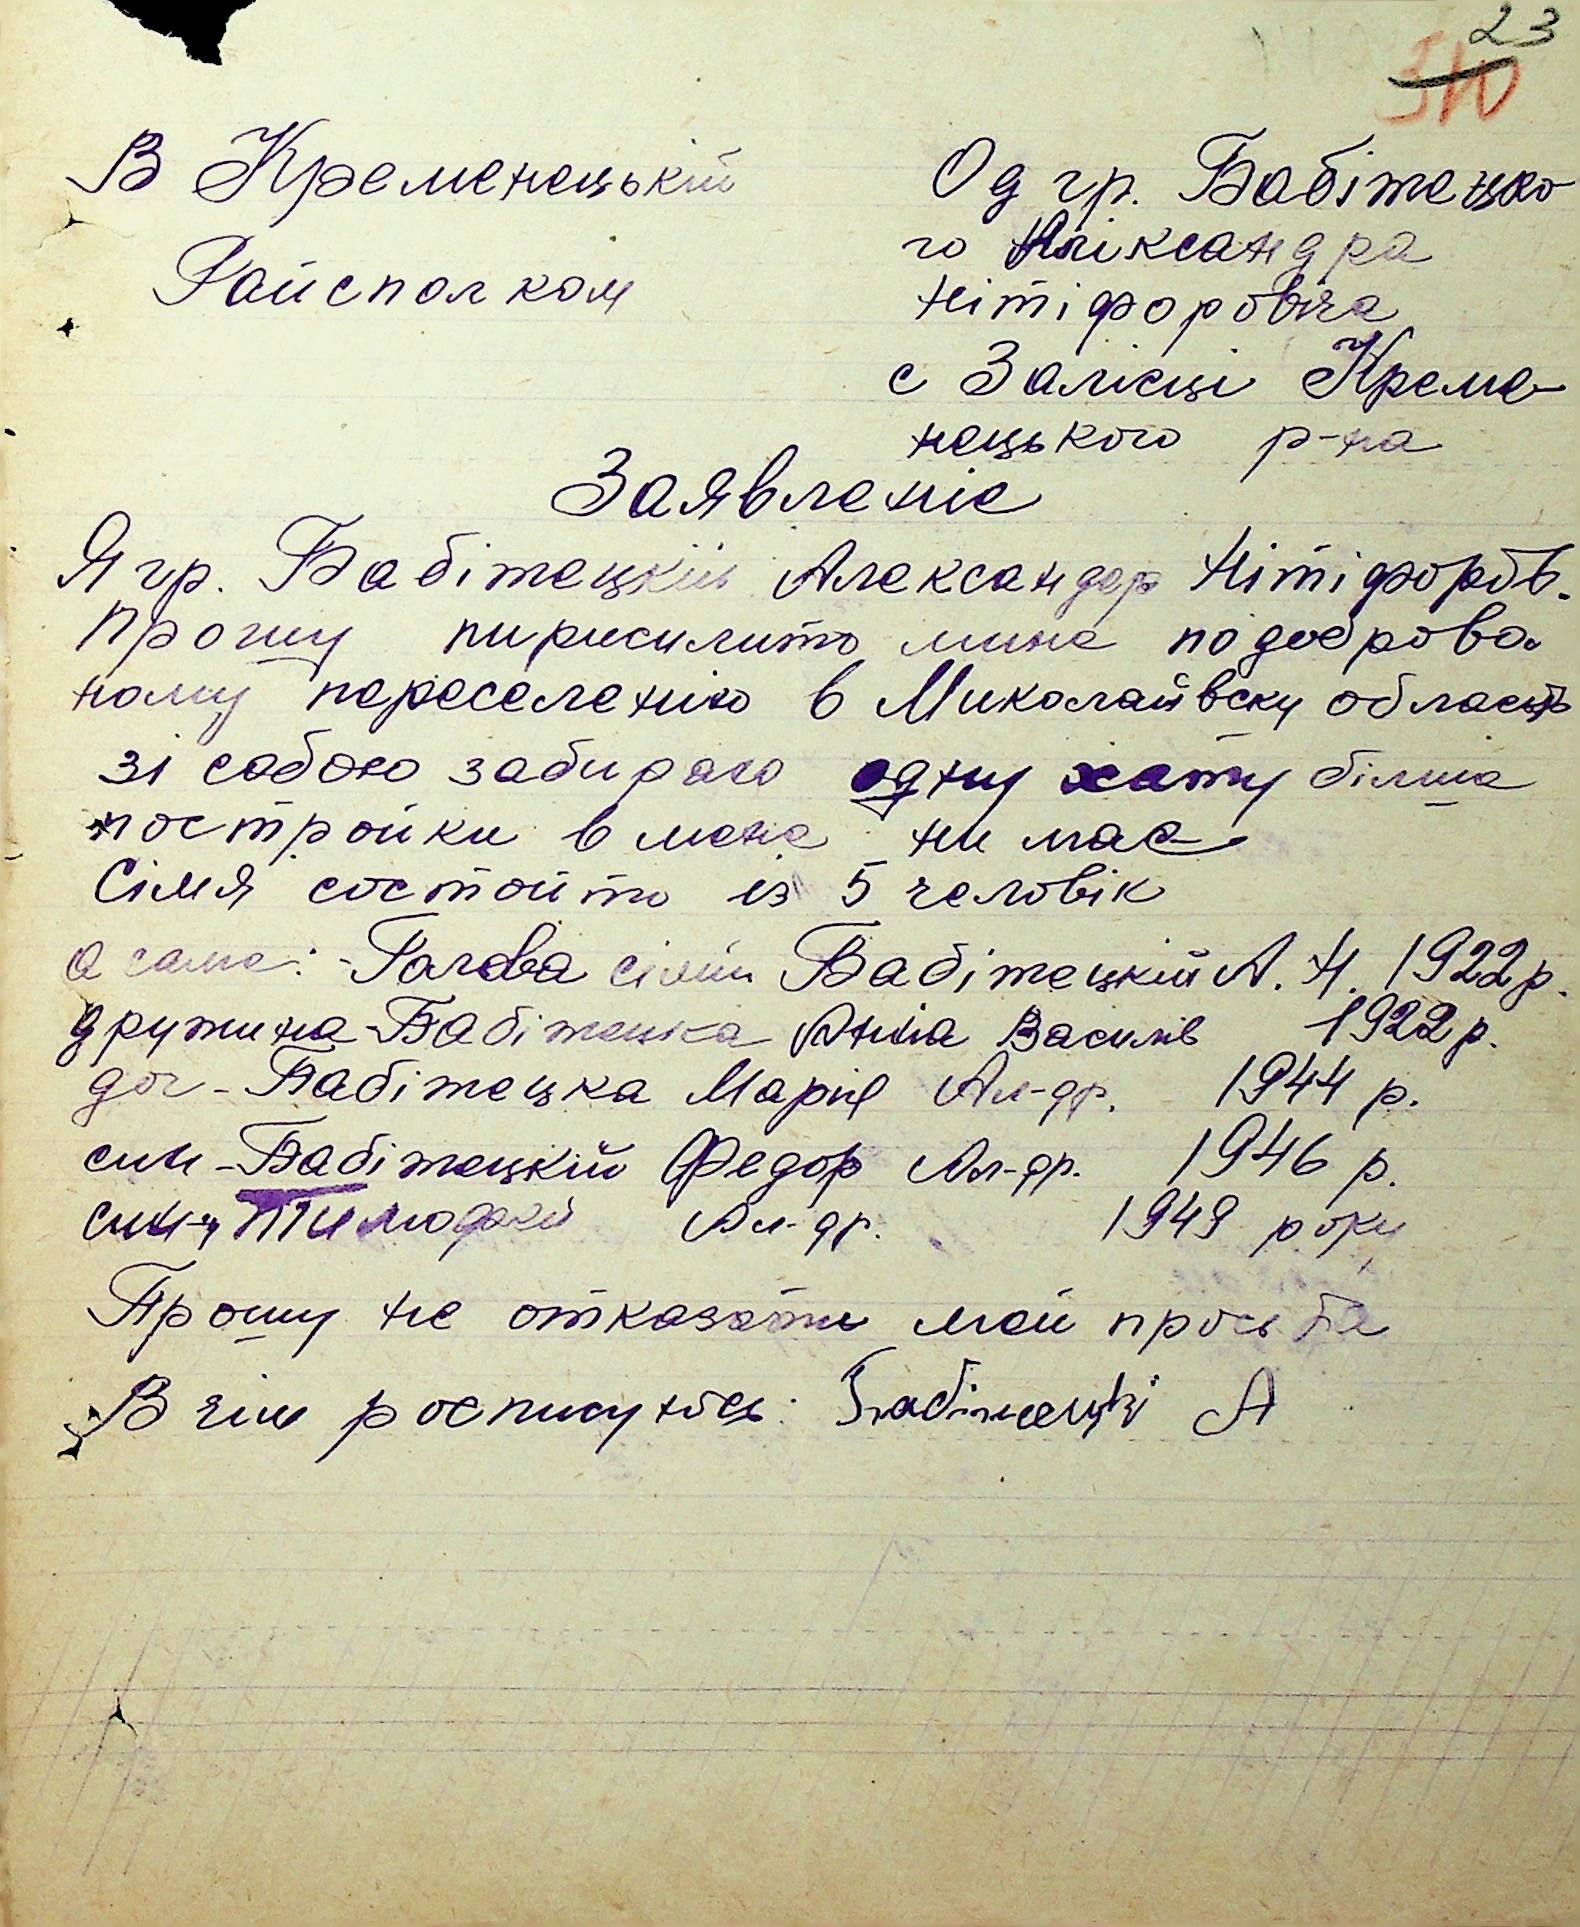 23
В Кременецькій
Райсполком
Од гр. Бабіжецко
го Аліксандра
Нітіфоровіча
с Залісці Креме-
нецького р-на
Заявленіе
Я гр. Бабіжецкій Александер Нітіфоров.
Прошу пирисилить мине по доброва
ному переселенію в Миколаївску область
зі сабою забираю одну хату більша
постройки в мене ни має
Сімя состоїть із 5 человік
а саме: - Голова сімїи Бабіжецкій А. Н. 1922 р.
дружина - Бабіжецка Анна Василів 1922 р.
доч - Бабіжецка Марія Ал-др. 1944 р.
син - Бабіжецкій Федор Ал-др. 1946 р.
син - " Тимофій Ал-др. 1949 року
Прошу не отказати моей просьбе
В чім роспісуюсь: Бабіжецкі А